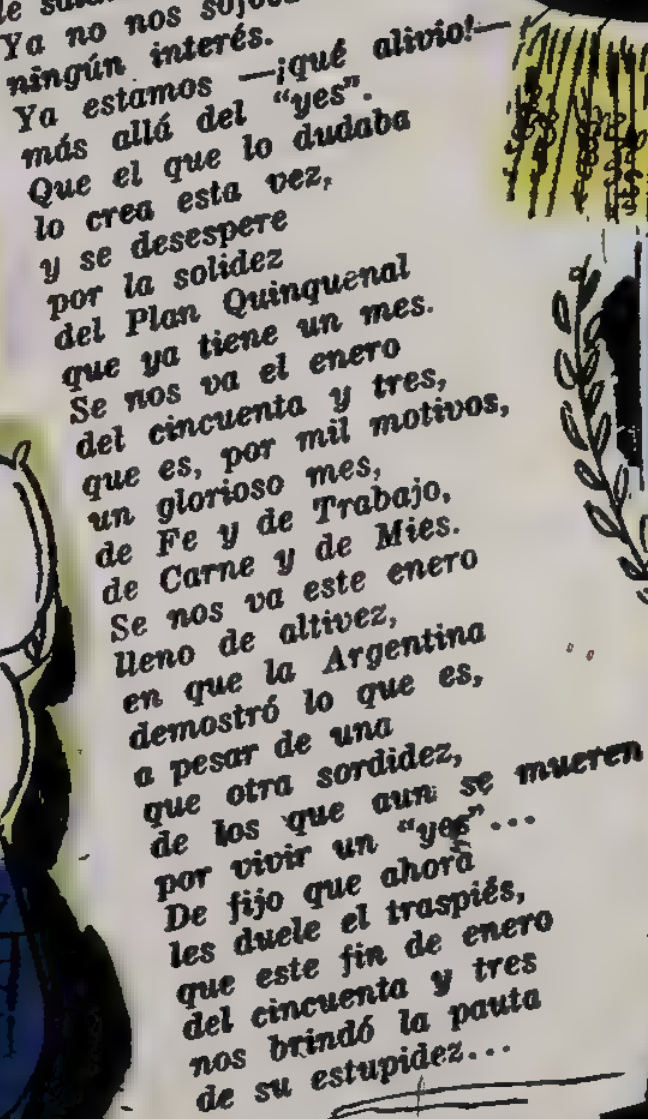 Ya no nos
ningún interés.
Ya estamos —¡qué alivio!—
más allá del “yes”.
Que el que lo dudaba
lo crea esta vez,
y se desespere
por la solidez
del Plan Quinquenal
que ya tiene un mes.
Se nos va el enero
del cincuenta y tres,
que es, por mil motivos,
un glorioso mes,
de Fe y de Trabajo,
de Carne y de Mies.
Se nos va este enero
lleno de altivez,
en que la Argentina
demostró lo que es,
a pesar de una
que otra sordidez,
de los que aun se mueren
por vivir un “yes”...
De fijo que ahora
les duele el traspiés,
que este fin de enero
del cincuenta y tres
nos brindó la pauta
de su estupidez...